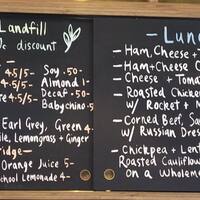 Landfill
discount
4.5/5- Soy .50-
4.5/5- Almond 1-
4.5/5- Decaf .50-
Babychino .5
Earl Grey, Green 4
Lemongrass + Ginger
Orange Juice 5
School Lemonade 4-
- Lun
- Ham, Cheese + T
- Ham + Cheese C
- Cheese + Tom
- Roasted Chicken
w/ Rocket +
- Corned Beef, Sa
w/ Russian Dres
- Chickpea + Lent
Roasted Cauliflow
on a Wholem